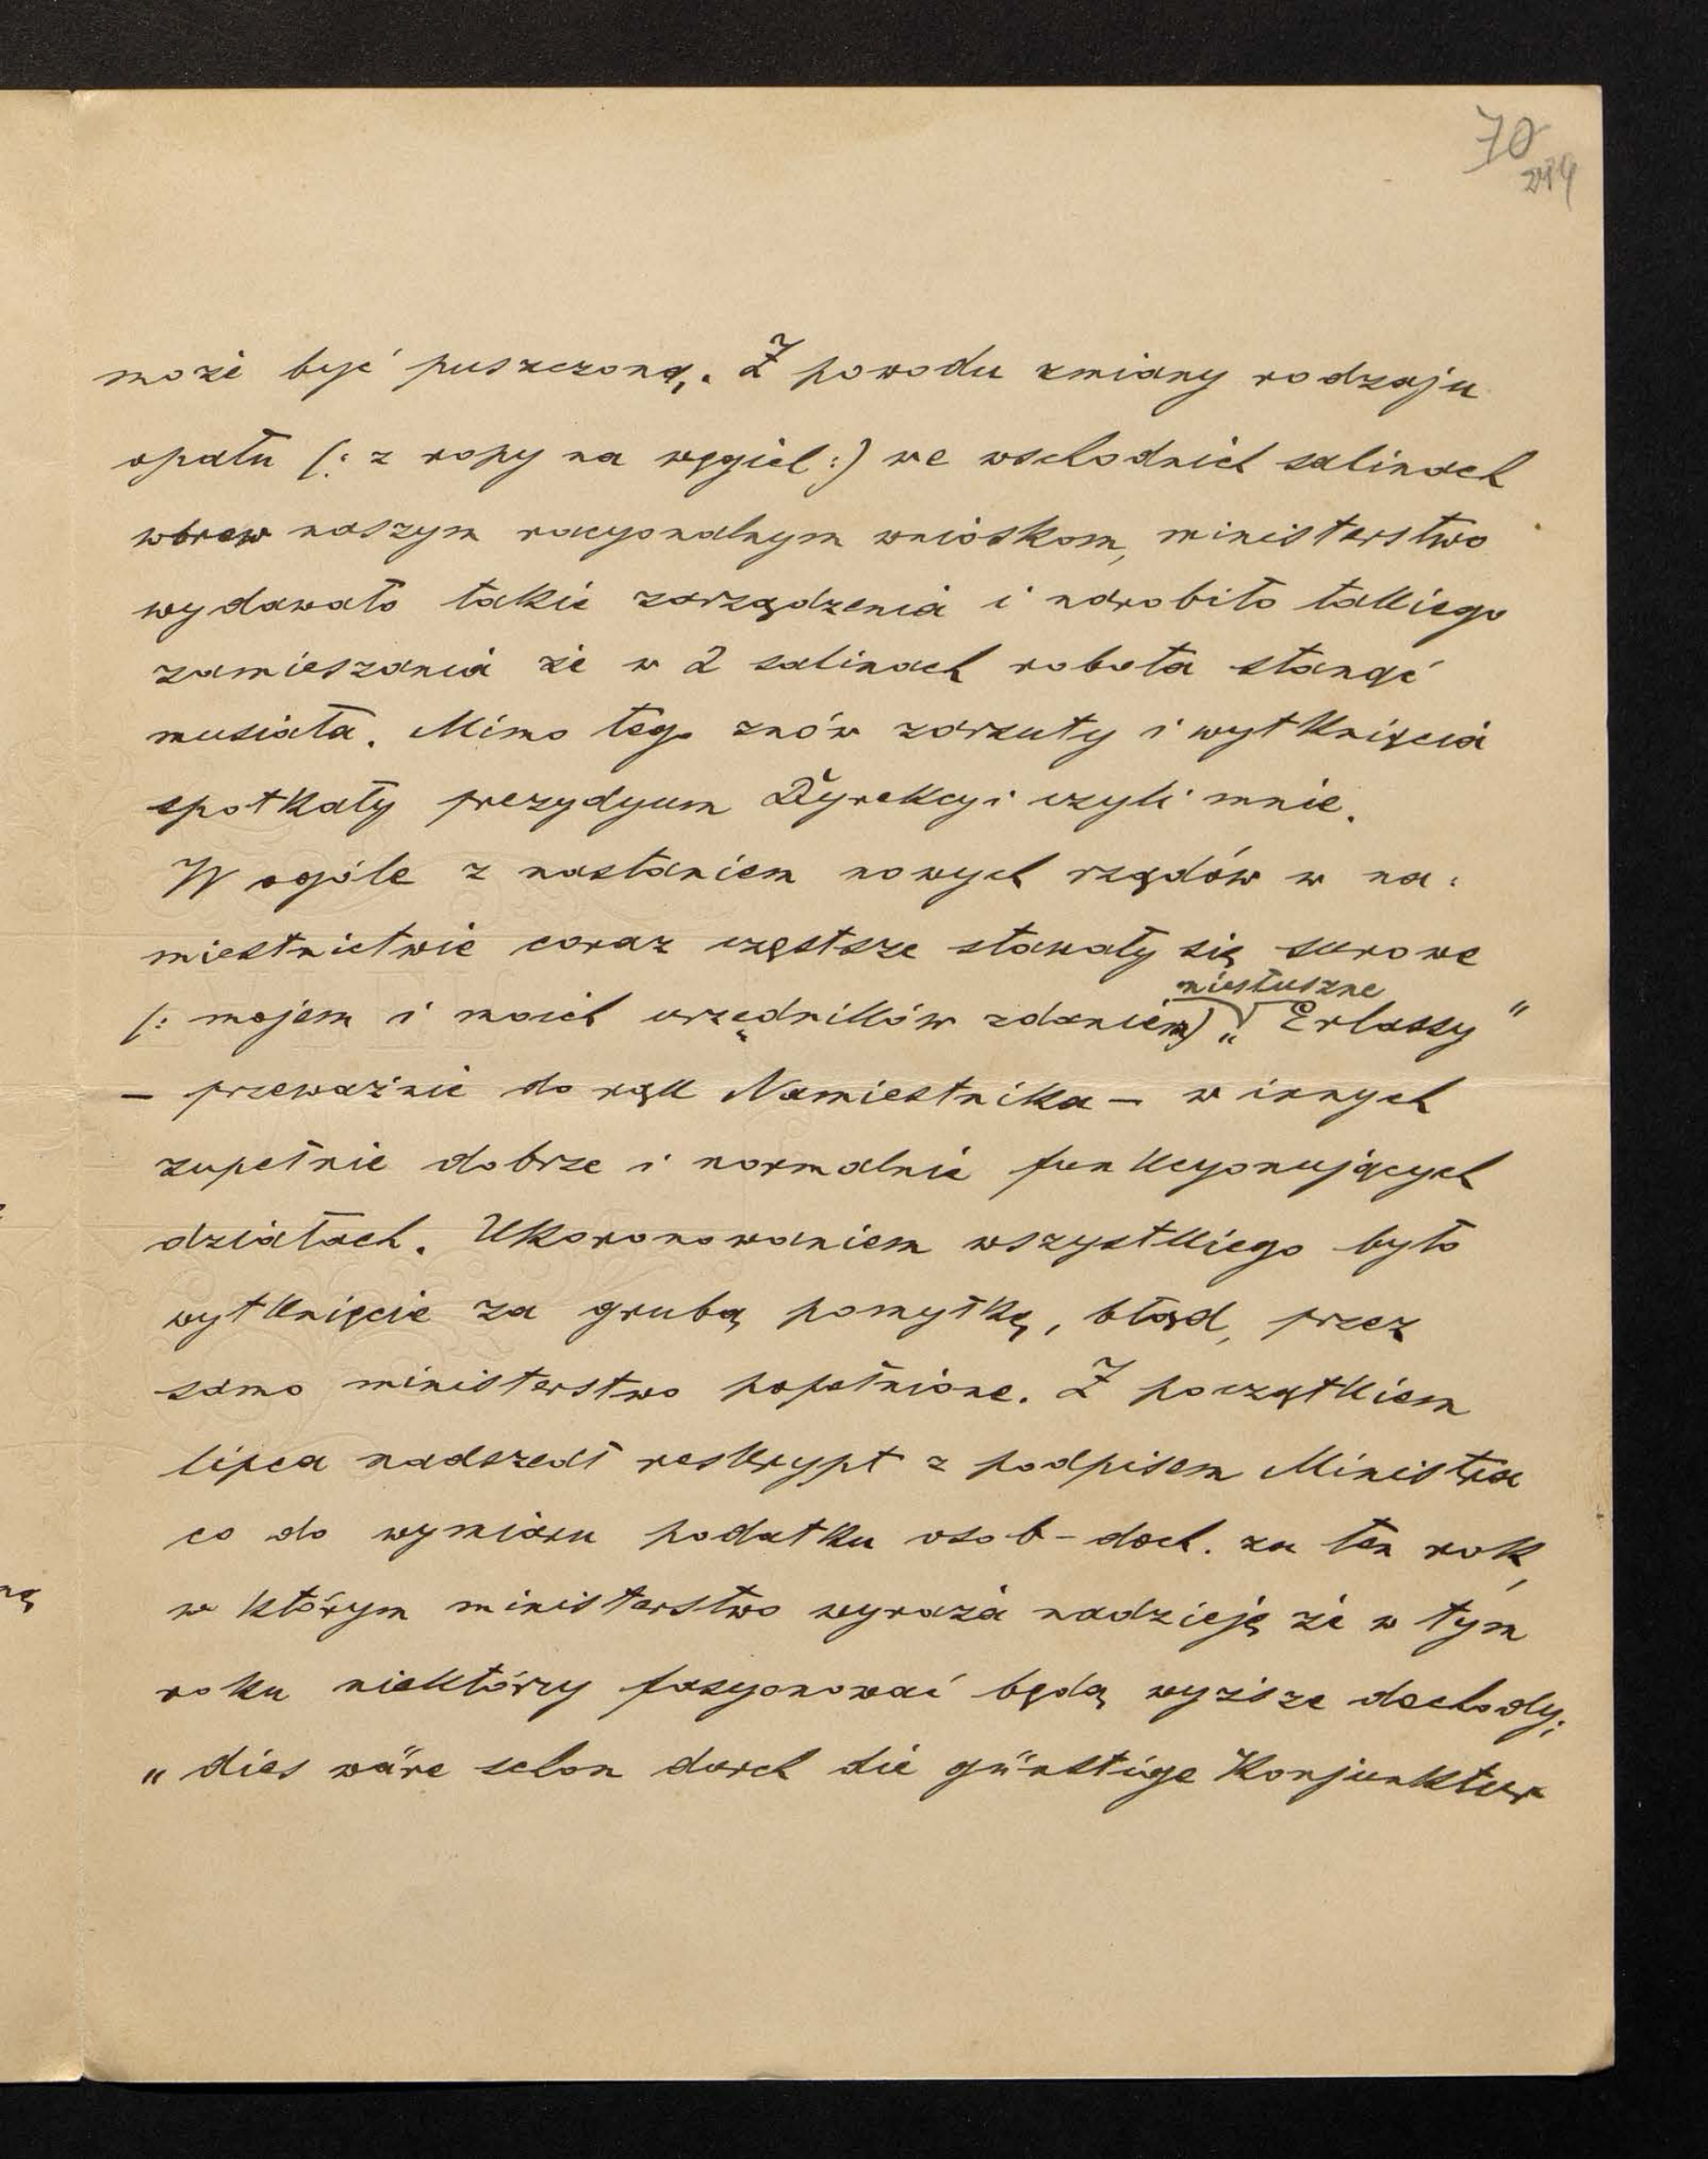 70
może być puszczoną. Z powodu zmiany rodzaju
opału (: z ropy na węgiel :) we wschodnich salinach
wbrew naszym racyonalnym wnioskom, ministerstwo
wydawało takie zarządzenia i narobiło takiego
zamieszania że w 2 salinach robota stanąć
musiała. Mimo tego znów zarzuty i wytknięcia
spotkały prezydyum Dyrekcyi czyli mnie.
W ogóle z nastaniem nowych rządów w na-
miestnictwie coraz częstsze stawały się surowe
niesłuszne
(: mojem i moich urzędników zdaniem) „Erlassy"
– przeważnie do rąk Namiestnika – w innych
zupełnie dobrze i normalnie funkcyonujących
działach. Ukoronowaniem wszystkiego było
wytknięcie za grubą pomyłkę, błąd, przez
samo ministerstwo popełnione. Z początkiem
lipca nadszedł reskrypt z podpisem Ministra
co do wymiaru podatku osob-doch. za ten rok,
w którym ministerstwo wyraża nadzieję że w tym
roku niektórzy fasyonować będą wyższe dochody;
„dies wäre schon durch die günstige Konjunktur
ną